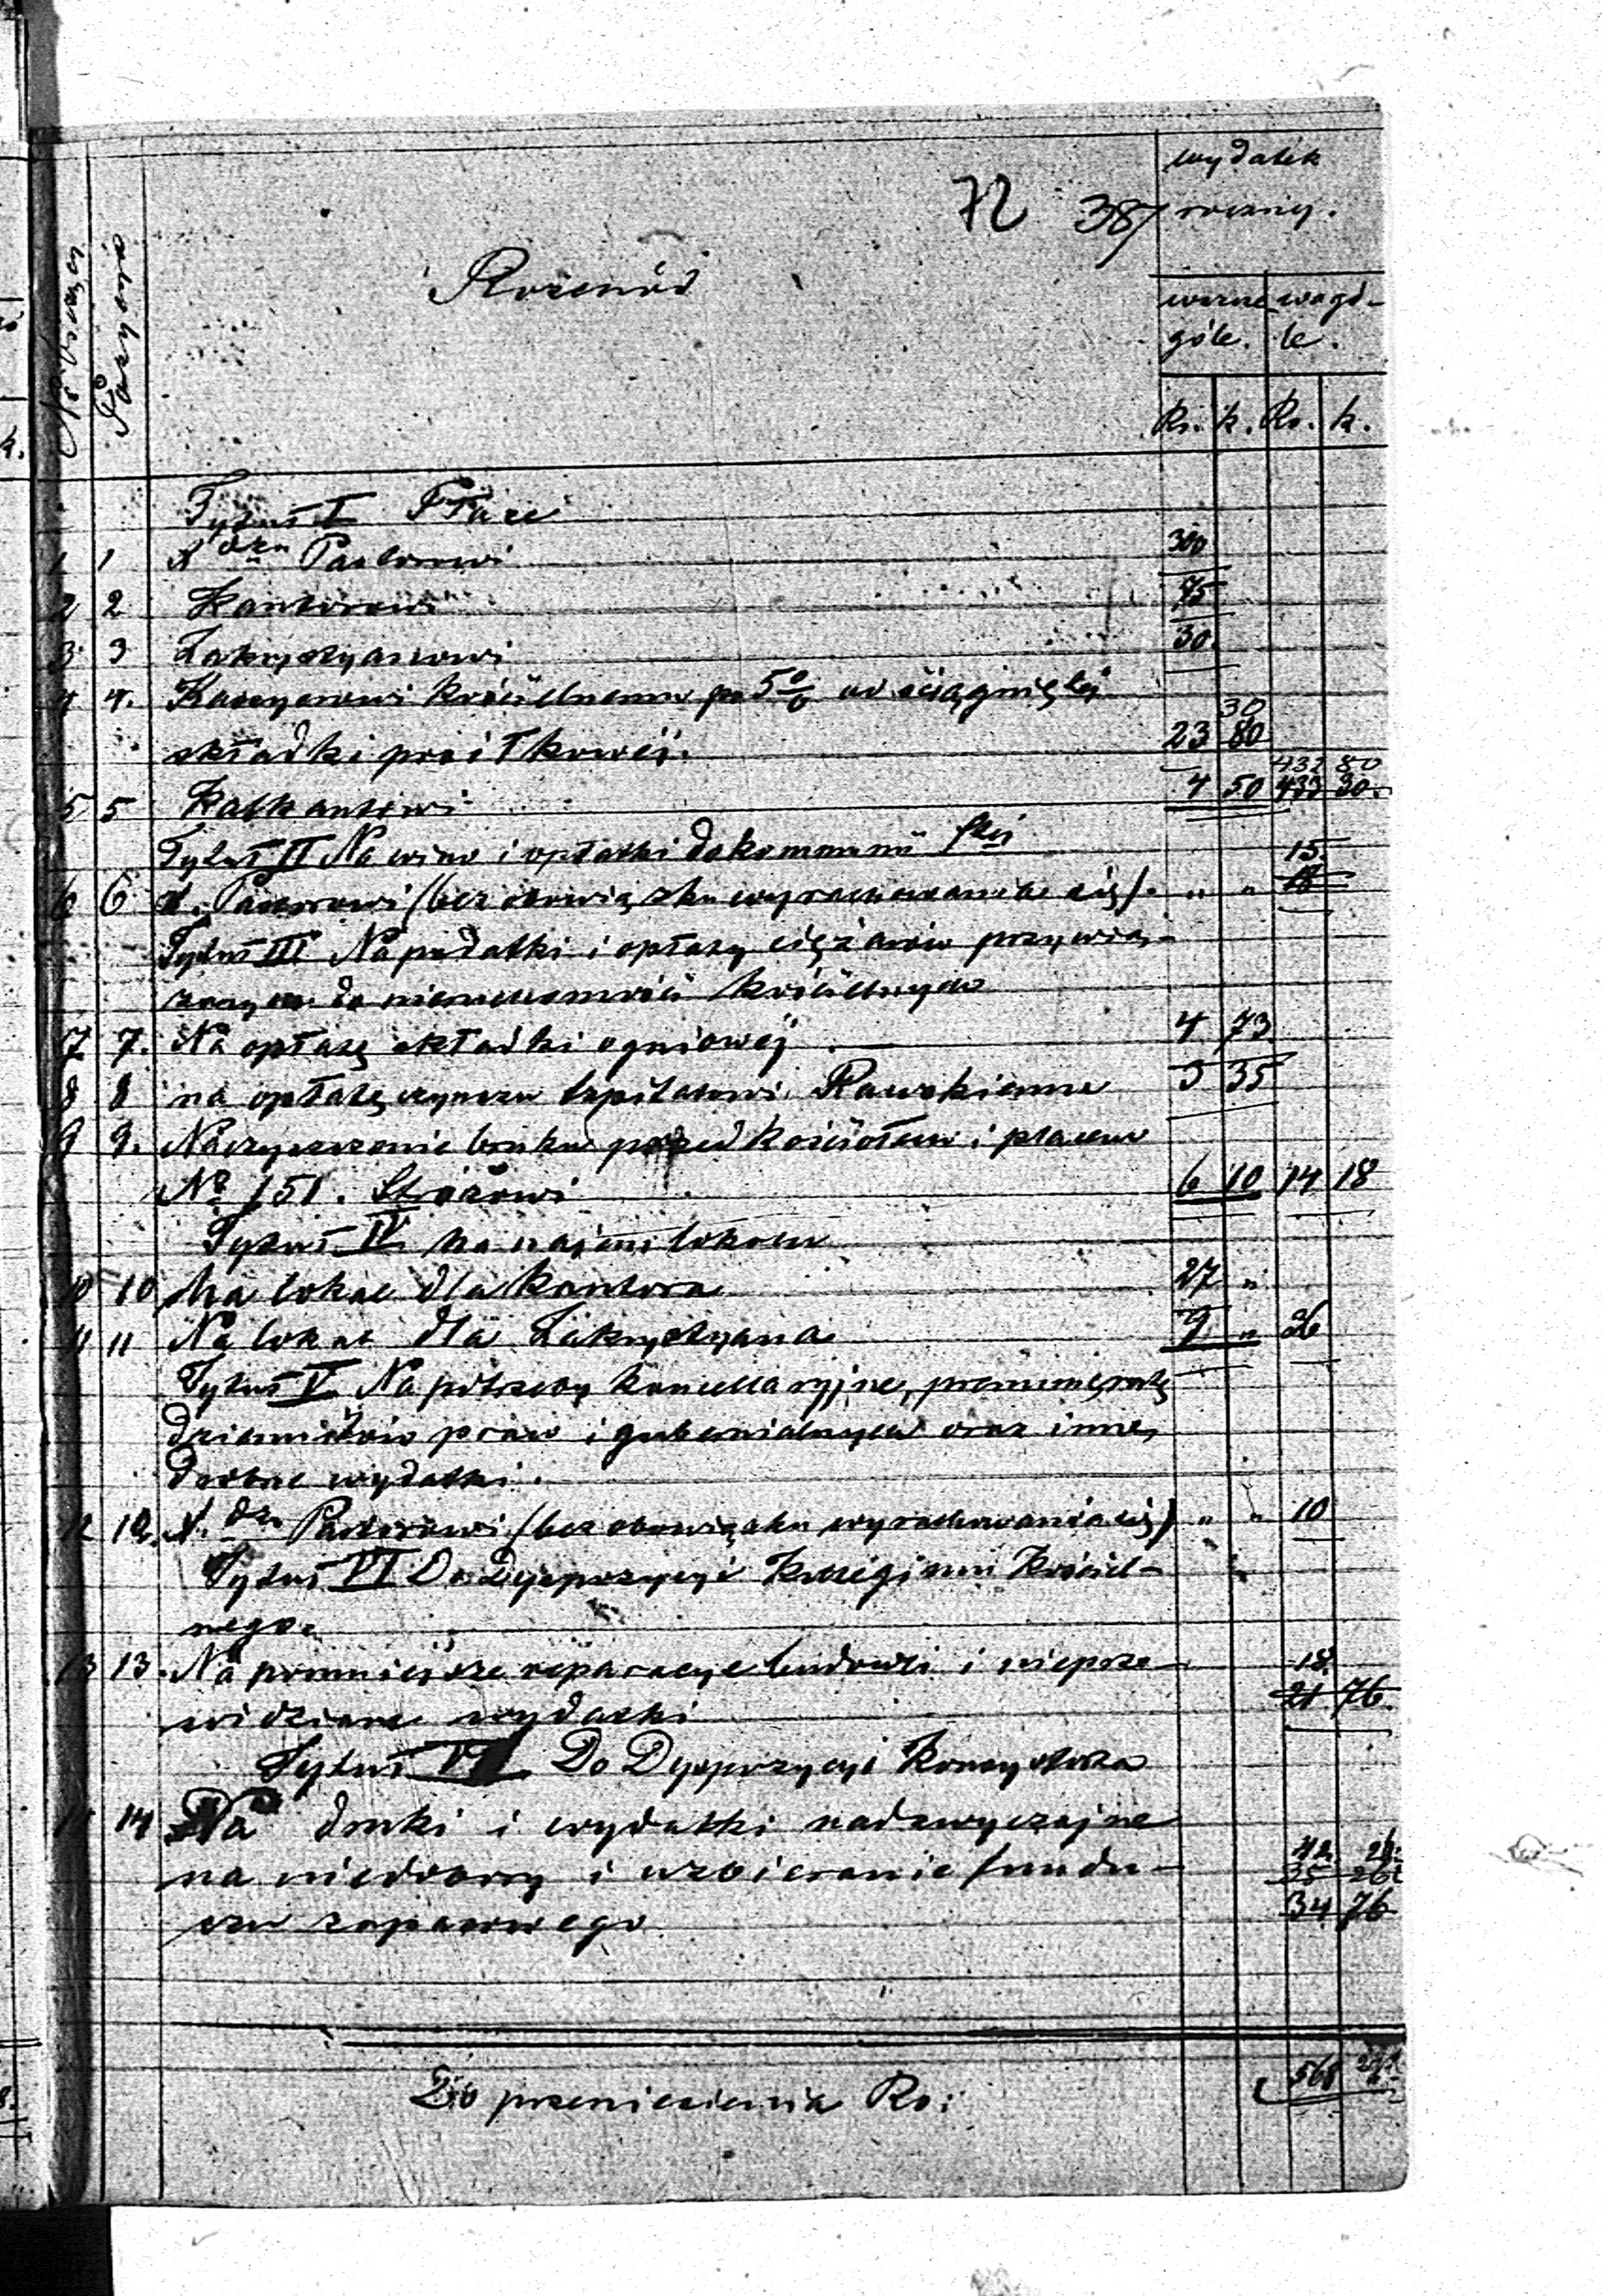 72 387
wydatek
roczny.
Nr bieżący
Pozycya
Rozchód
wszcze- wogó-
góle. le.
Rs. k. Rs. k.
Tytuł I Płace
1 1 X dzu Pastorowi 300
2 2 Kantorowi 75
3 3 Zakrystyanowi 30.
4 4. Kassyerowi kościelnemu po 5% od ściągniętej
30
składki posiłkowej. 23 80
432 80
5 5 Kalkantowi 4 50 433 30.
Tytuł II Na wino i opłatki do kommunii Stej
15.
6 6 X. Pastorowi (bez obowiązku wyrachowania się). " " 18
Tytuł III Na podatki i opłaty ciężarów przywią-
zanych do nieruchomości kościelnych
7 7. Na opłatę składki ogniowej 4 73
8 8 na opłatę czynszu szpitalowi Rawskiemu 3 35
9 9. Na czyszczenie bruku przed kościołem i placem
No 151. Stróżowi 6 10 14 18
Tytuł IV na najem lokalu
10 10 Na lokal dla kantora 27 "
11 11 Na lokal dla Zakrystyana 9 " 36
Tytuł V Na potrzeby kancellaryjne, prenumeratę
dzienników praw i gubernialnych oraz inne,
drobne wydatki.
12 12. X. dzu Pastorowi (bez obowiązku wyrachowania się) " " 10
Tytuł VI Do Dyspozycyi Kollegium Kościel-
nego.
13 13. Na pomniejsze reparacye budowli i nieprze- 18.
widziane wydatki 21 76.
Tytuł VII Do Dyspozycyi Konsystorza
14 Na druki i wydatki nadzwyczajne
na niedobory i uzbieranie fundu-
szu zapasowego 34 76
Do przeniesienia Rs: 568